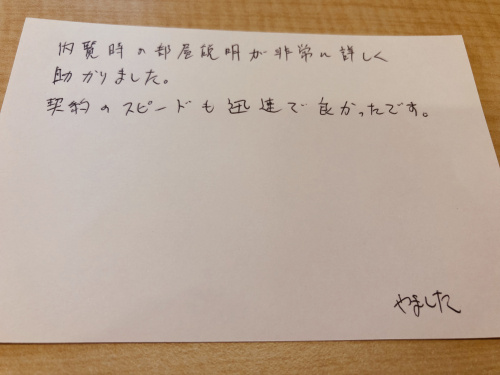 内覧時の部屋説明が非常に詳しく
助かりました。
契約のスピードも迅速で良かったです。
やました